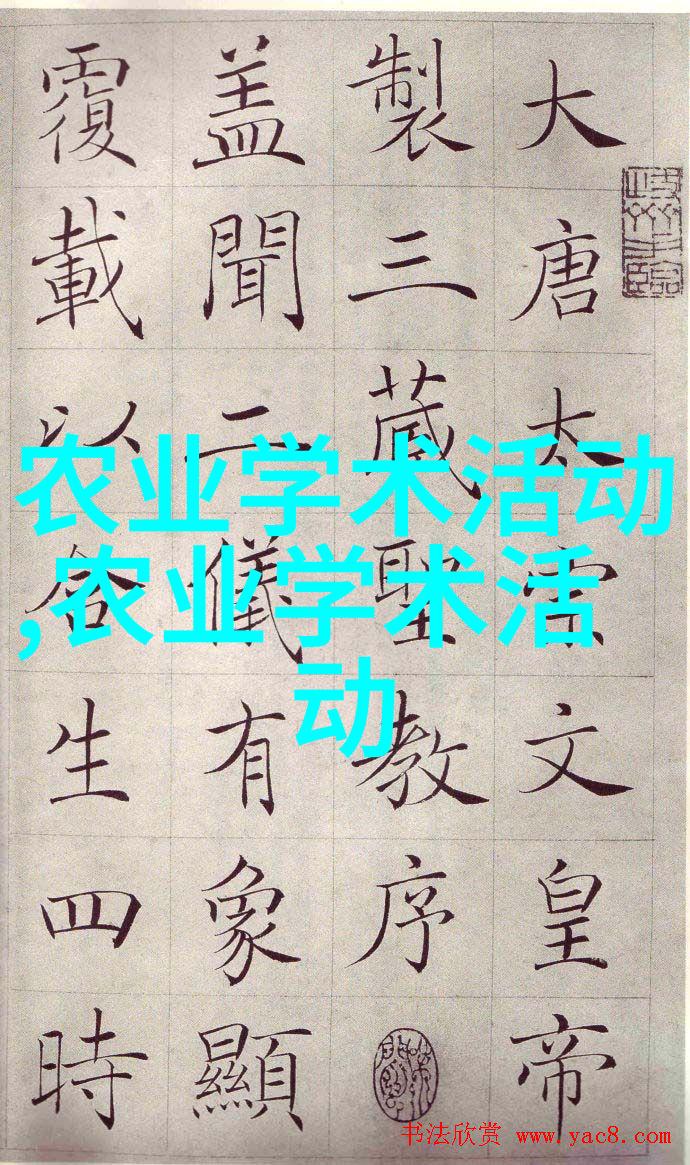 大唐太宗文皇帝
製三蔵聖教序
盖聞二儀有象顯
覆載以含生四時
农业学术活动
,农业学术活
动
书法欣赏 www.yac8.com